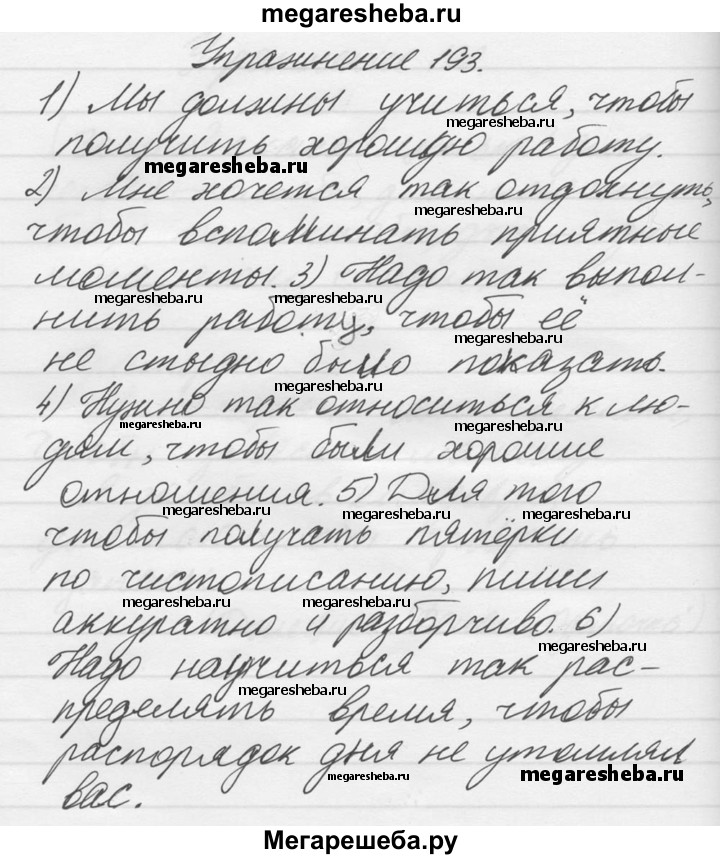 megaresheba.ru
Упражнение 193.
1) Мы должны учиться, чтобы
megaresheba.ru
получить хорошую работу.
megaresheba.ru
2) Мне хочется так отдохнуть,
megaresheba.ru
чтобы вспоминать приятные
моменты. 3) Надо так выпол-
megaresheba.ru megaresheba.ru
нить работу, чтобы её
megaresheba.ru
не стыдно было показать.
megaresheba.ru
4) Нужно так относиться к лю-
megaresheba.ru megaresheba.ru
дям, чтобы были хорошие
отношения. 5) Для того
megaresheba.ru megaresheba.ru
чтобы получать пятёрки
по чистописанию, пиши
megaresheba.ru megaresheba.ru
аккуратно и разборчиво. 6)
megaresheba.ru
Надо научиться так рас-
megaresheba.ru
пределять время, чтобы
распорядок дня не утомлял
megaresheba.ru megaresheba.ru
вас.
Мегарешеба.ру